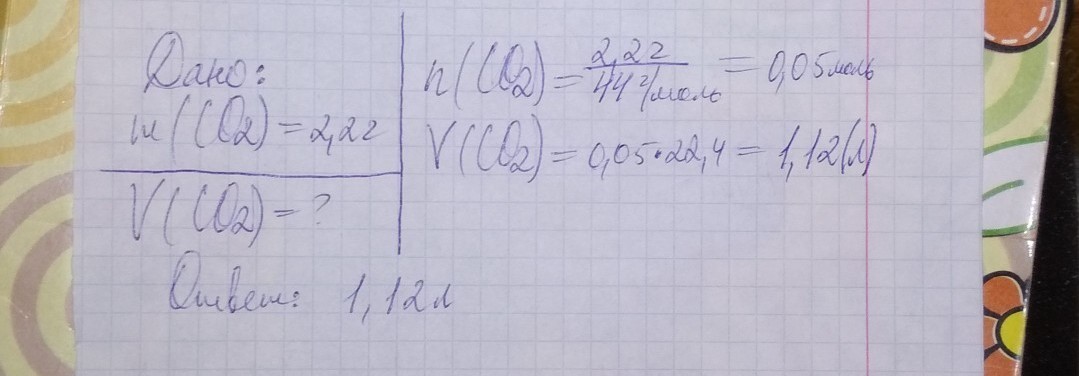 Дано:
m(CO2) = 2,2г
V(CO2) = ?
n(CO2) = 2,2г / 44г/моль = 0,05моль
V(CO2) = 0,05·22,4 = 1,12(л)
Ответ: 1,12л